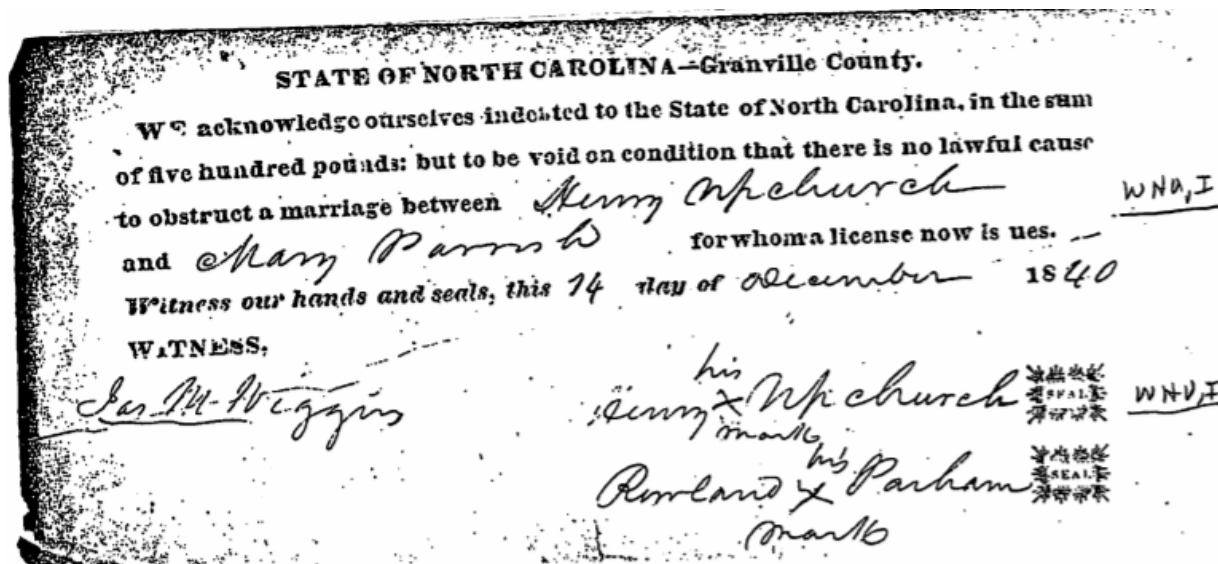 STATE OF NORTH CAROLINA—Granville County.
WE acknowledge ourselves indebted to the State of North Carolina, in the sum
of five hundred pounds: but to be void on condition that there is no lawful cause
to obstruct a marriage between Henry Upchurch
and Mary Parrish for whom a license now is ues.
Witness our hands and seals, this 14 day of December 1840
WITNESS.
Jas M. Wiggins
his
Henry X Upchurch SEAL
mark
his
Rowland X Parham SEAL
mark